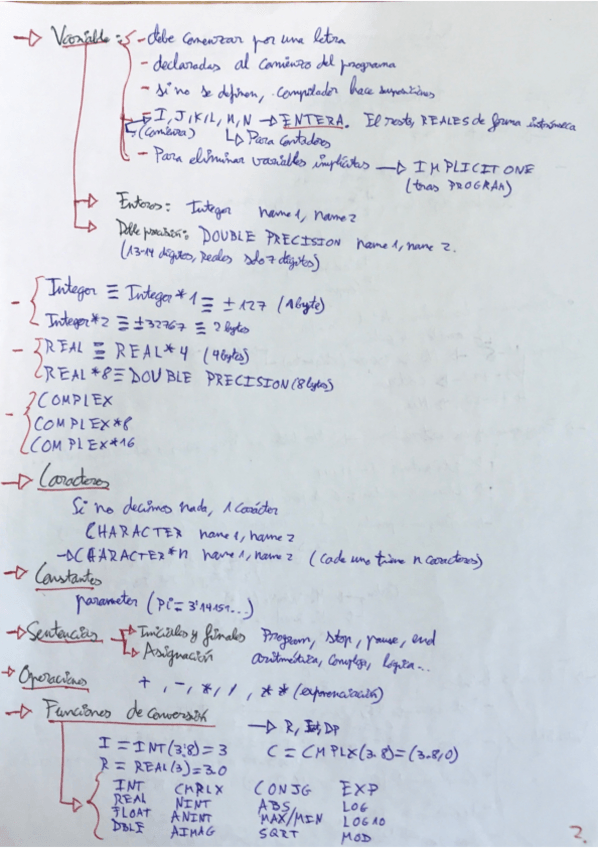 → Variable: - debe comenzar por una letra
- declaradas al comienzo del programa
- si no se definen, computador hace suposiciones
- I, J, K, L, M, N → ENTERA. El resto, REALES de forma intrínseca
(comienza) ↳ Para contadores
- Para eliminar variables implícitas → IMPLICIT ONE
(tras PROGRAM)
→ Enteros: Integer name1, name2
→ Doble precisión: DOUBLE PRECISION name1, name2.
(13-14 dígitos, Reales solo 7 dígitos)
- Integer ≡ Integer*1 ≡ ±127 (1 byte)
Integer*2 ≡ ±32767 ≡ 2 bytes
- REAL ≡ REAL*4 (4 bytes)
REAL*8 ≡ DOUBLE PRECISION (8 bytes)
- COMPLEX
COMPLEX*8
COMPLEX*16
→ Caracteres
Si no decimos nada, 1 carácter
CHARACTER name1, name2
→ CHARACTER*n name1, name2 (cada uno tiene n caracteres)
→ Constantes
parameter (Pi = 3'14151...)
→ Sentencias → Iniciales y finales Program, stop, pause, end
↳ Asignación aritmética, compleja, lógica...
→ Operaciones
+, -, *, /, ** (exponenciación)
→ Funciones de conversión
→ R, Int, DP
I = INT(3.8) = 3 C = CMPLX(3.8) = (3.8,0)
R = REAL(3) = 3.0
INT CMPLX CONJG EXP
REAL NINT ABS LOG
FLOAT ANINT MAX/MIN LOG10
DBLE AIMAG SQRT MOD
2.